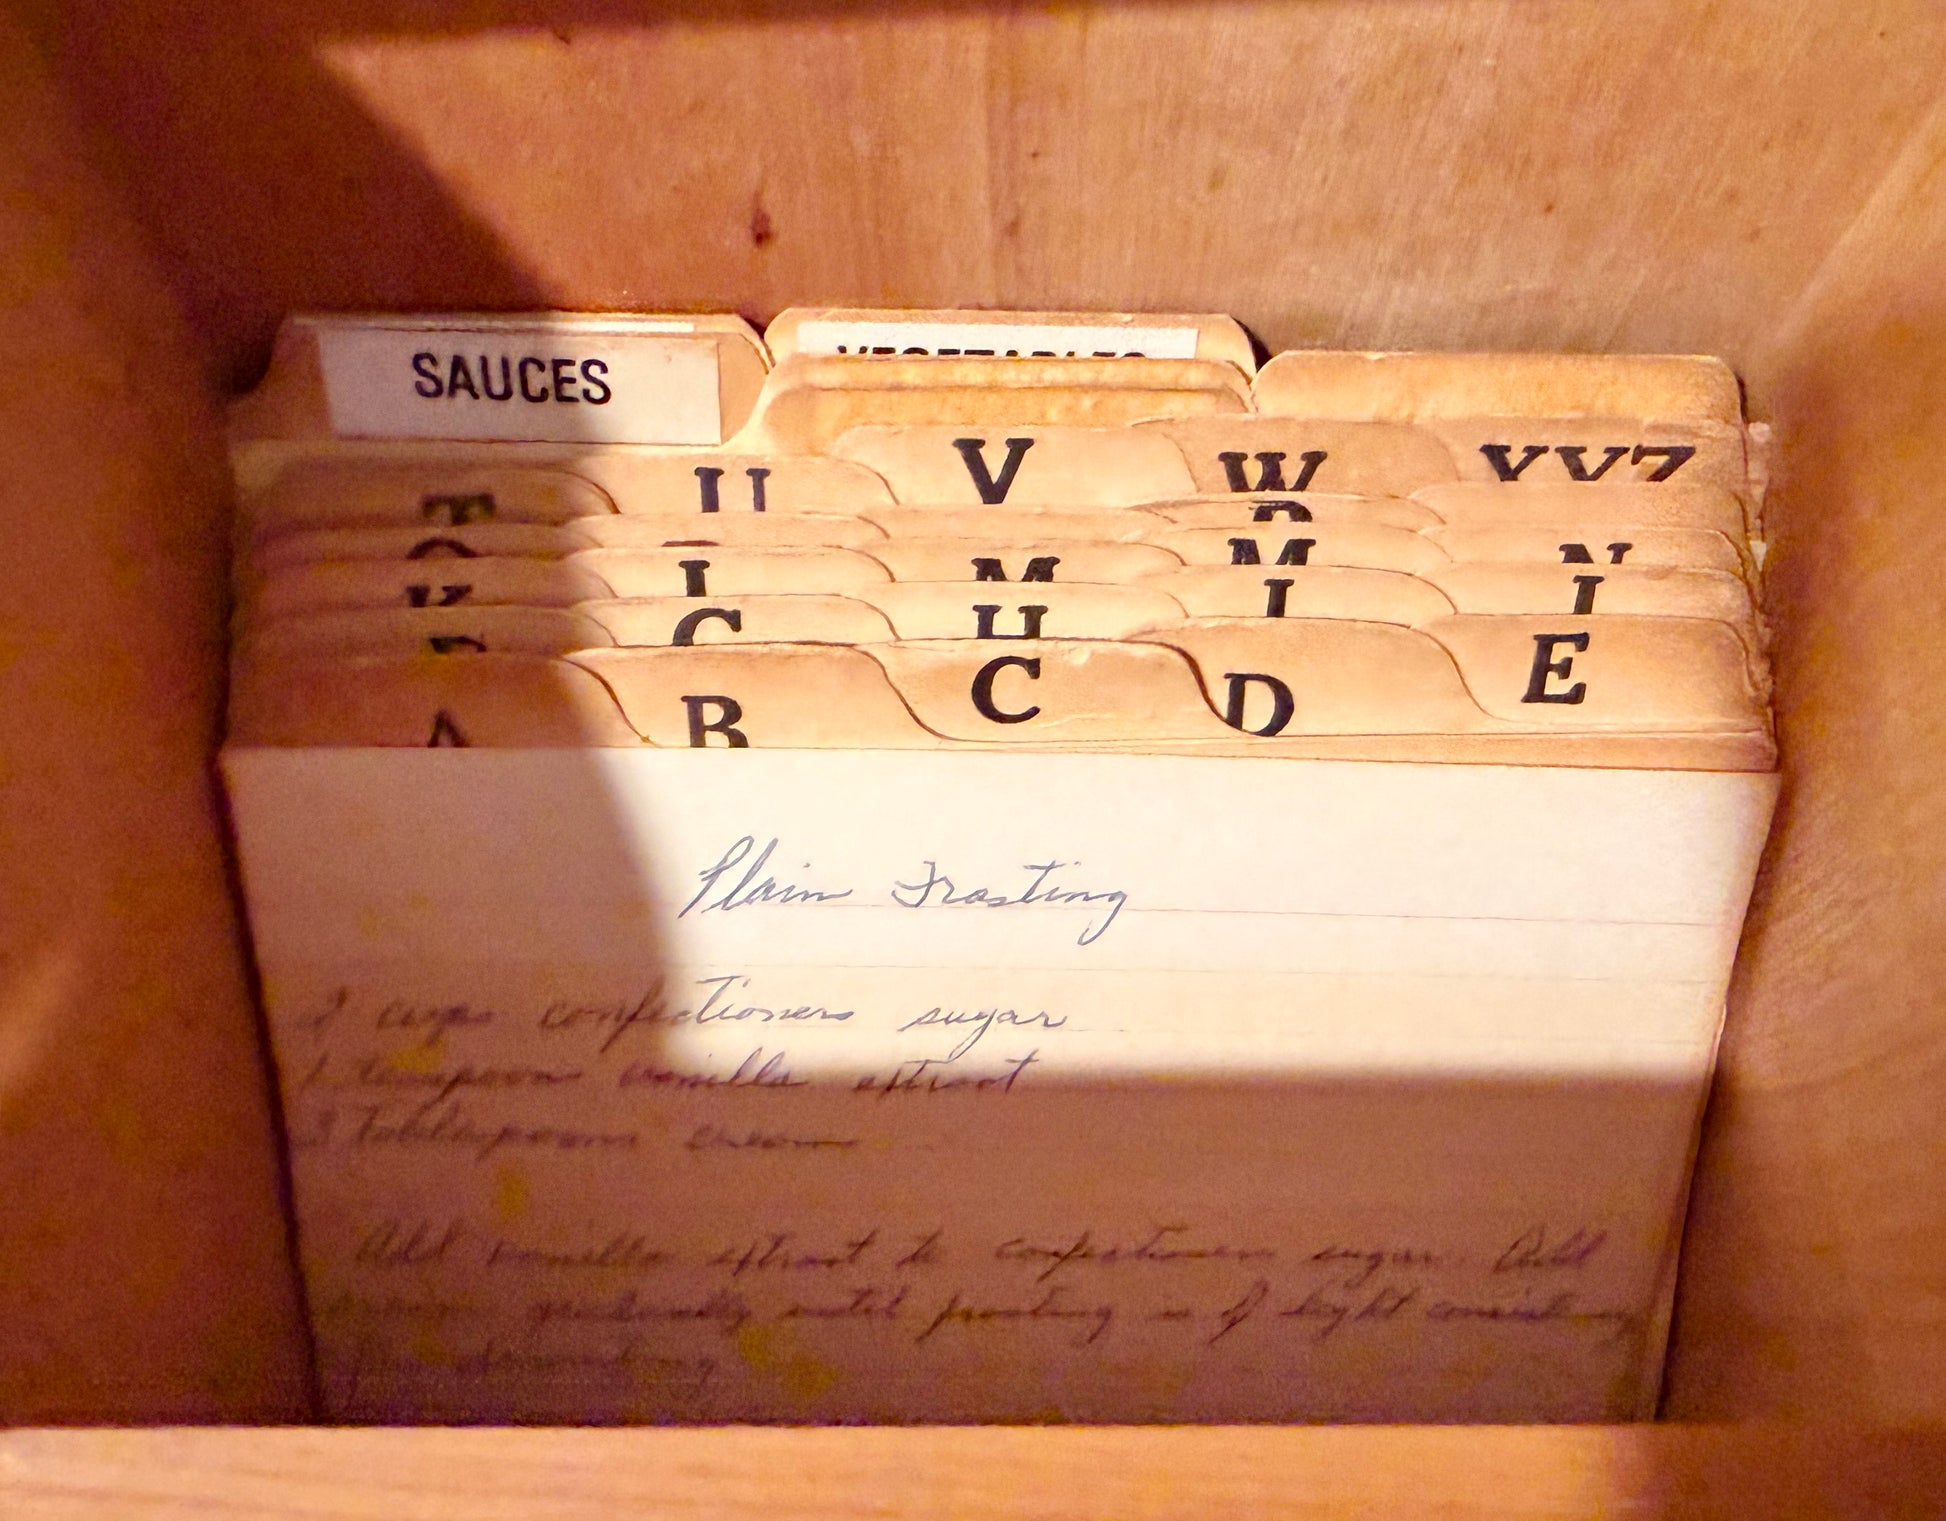 SAUCES VEGETABLES
U V W XYZ
T
N
L M
G H I J
A B C D E
Plain Frosting
2 cups confectioners sugar
1 teaspoon vanilla extract
3 Tablespoons cream
Add vanilla extract to confectioners sugar. Add
cream gradually until frosting is of light consistency
for decorating